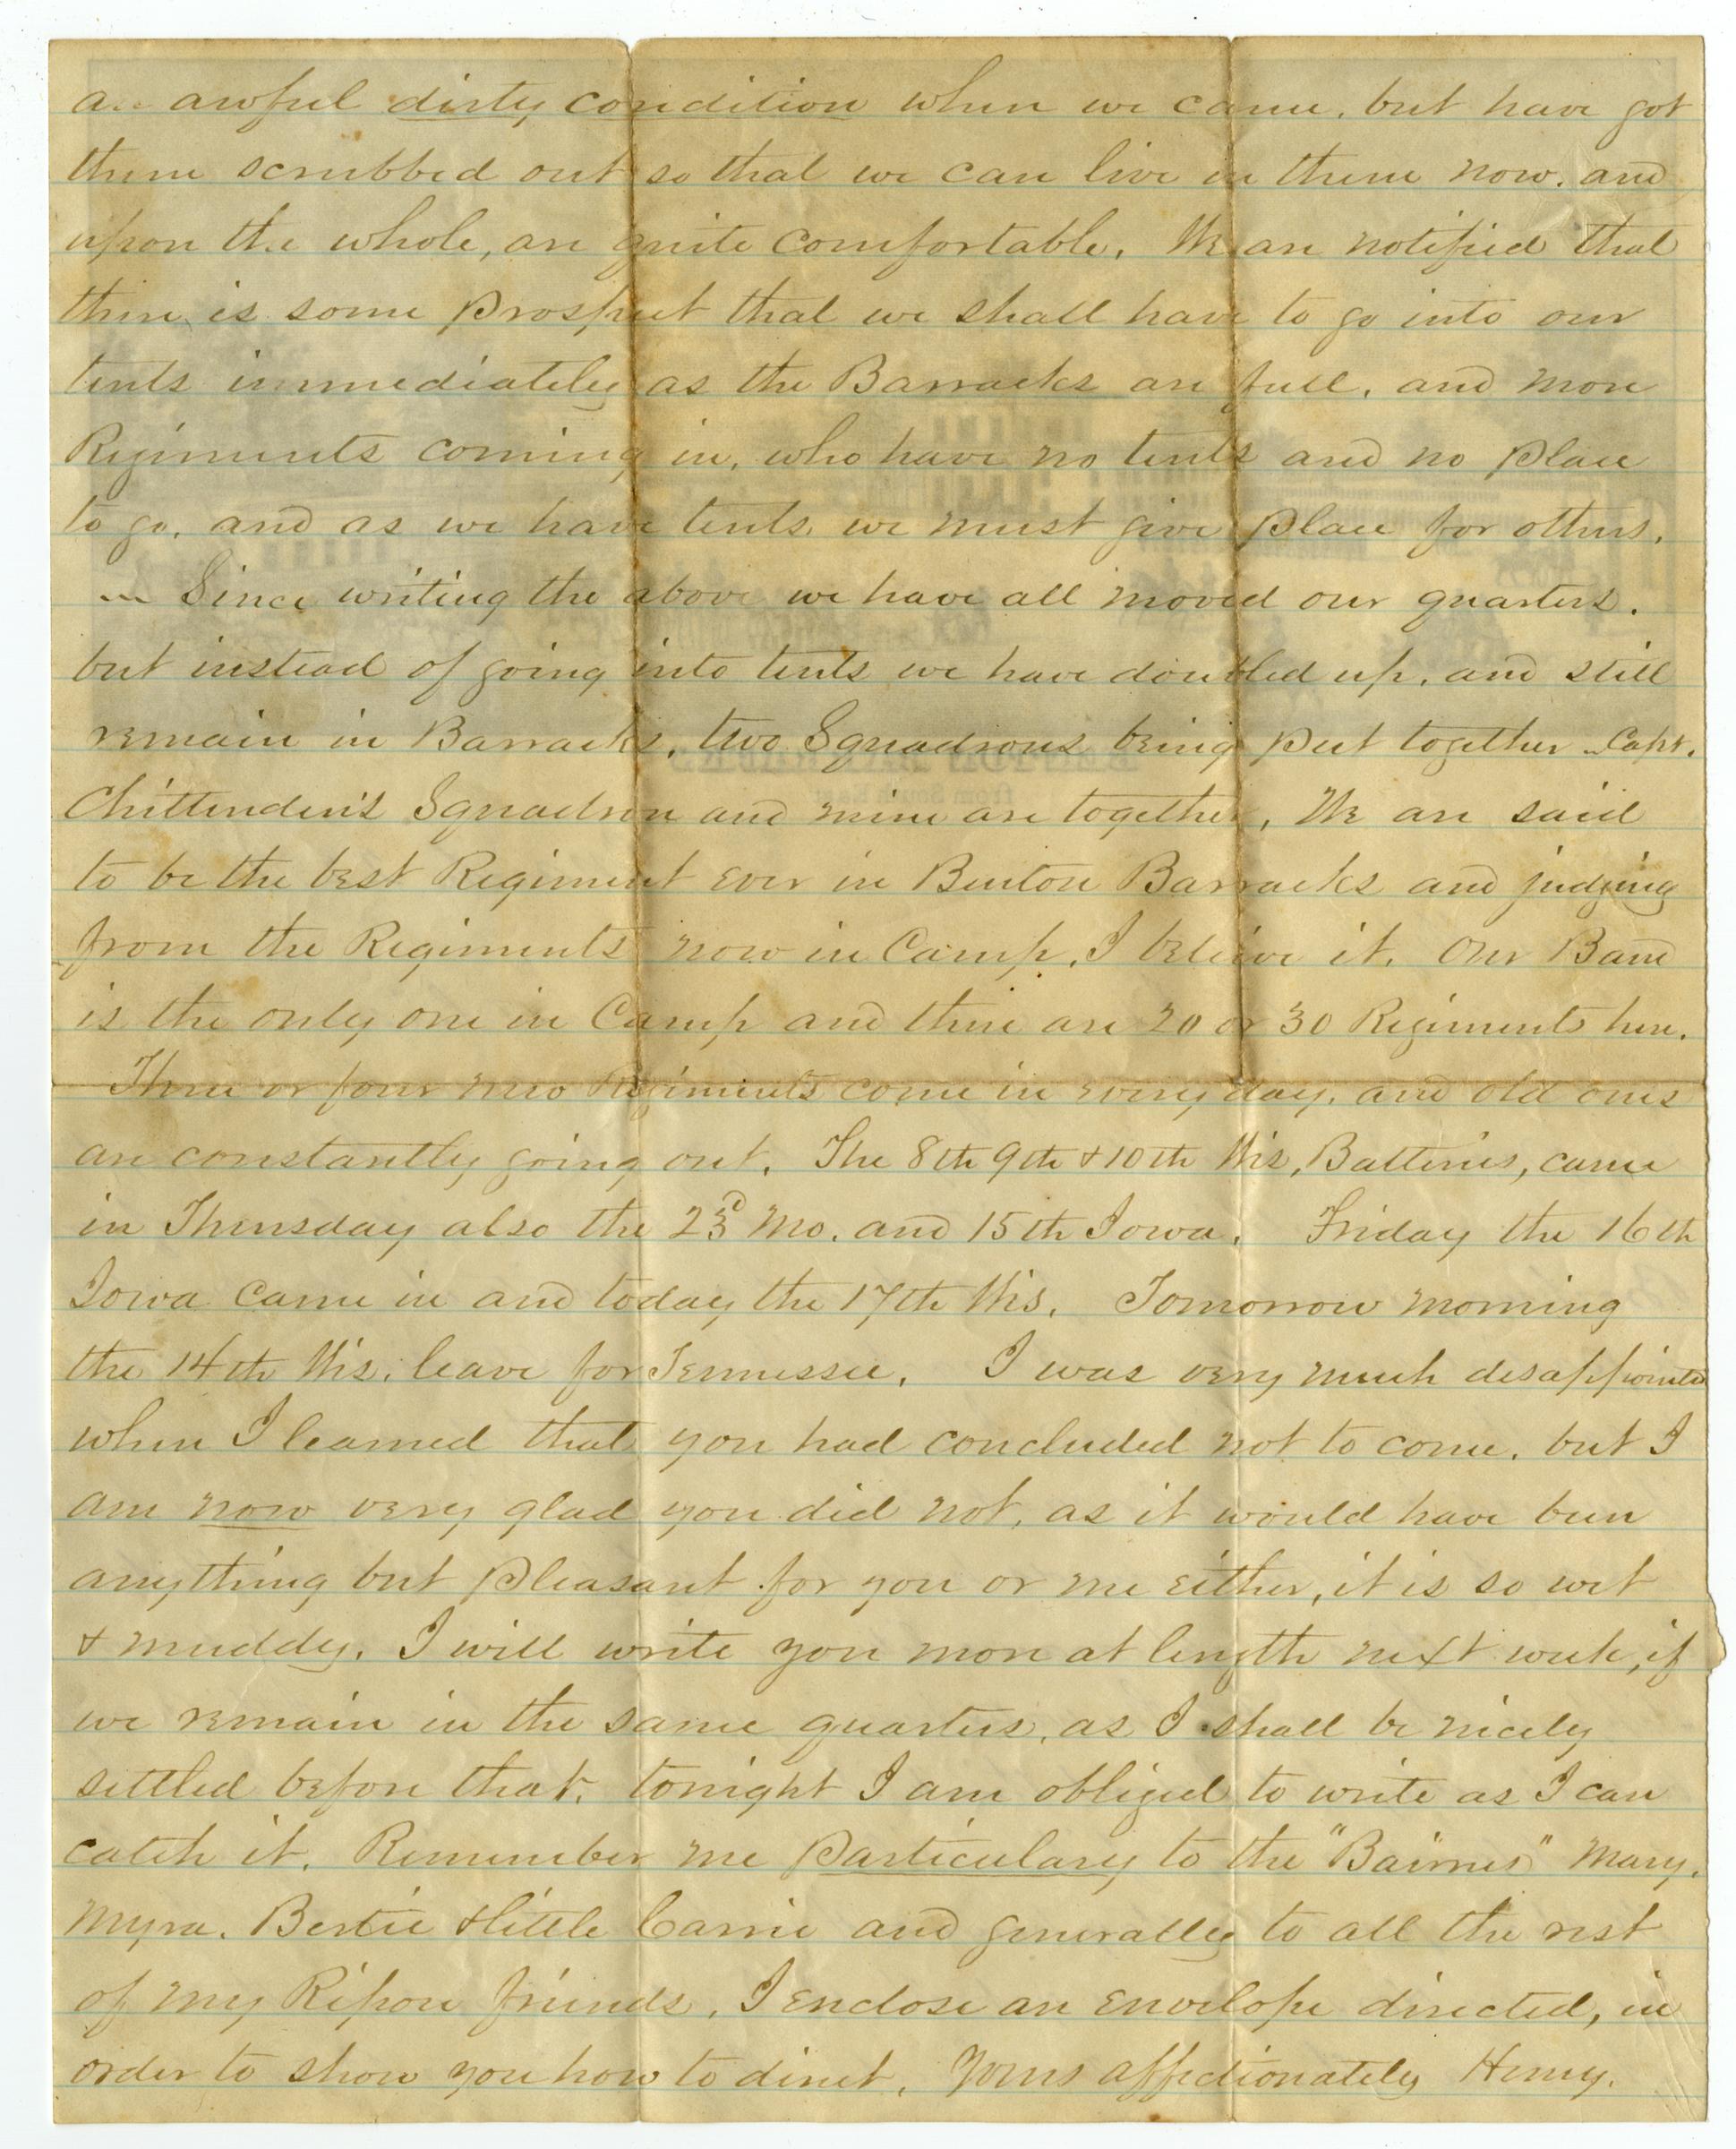 an awful dirty condition when we came, but have got
them scrubbed out so that we can live in them now, and
upon the whole, are quite comfortable. We are notified that
there is some prospect that we shall have to go into our
tents immediately as the Barracks are full, and more
Regiments coming in, who have no tents and no place
to go, and as we have tents, we must give place for others.
— Since writing the above we have all moved our quarters.
but instead of going into tents we have doubled up, and still
remain in Barracks, two Squadrons being put together – Capt.
Chittenden's Squadron and mine are together, We are said
to be the best Regiment ever in Benton Barracks and judging
from the Regiments now in Camp, I believe it. Our Band
is the only one in Camp and there are 20 or 30 Regiments here.
Three or four new Regiments come in every day, and old ones
are constantly going out. The 8th 9th & 10th Wis, Batteries, came
in Thursday also the 23d Mo. and 15th Iowa. Friday the 16th
Iowa came in and today the 17th Wis. Tomorrow morning
the 14th Wis. leave for Tennessee. I was very much desappointed
when I learned that you had concluded not to come, but I
am now very glad you did not, as it would have been
anything but pleasant for you or me either, it is so wet
& muddy. I will write you more at length next week, if
we remain in the same quarters, as I shall be nicely
settled before that. tonight I am obliged to write as I can
catch it. Remember me particulary to the "Bairnes" Mary,
Myra, Bertie & little Carrie and generally to all the rest
of my Ripon friends, I enclose an envelope directed, in
order to show you how to direct. Yours affectionately Henry.
BENTON BARRACKS
from South East